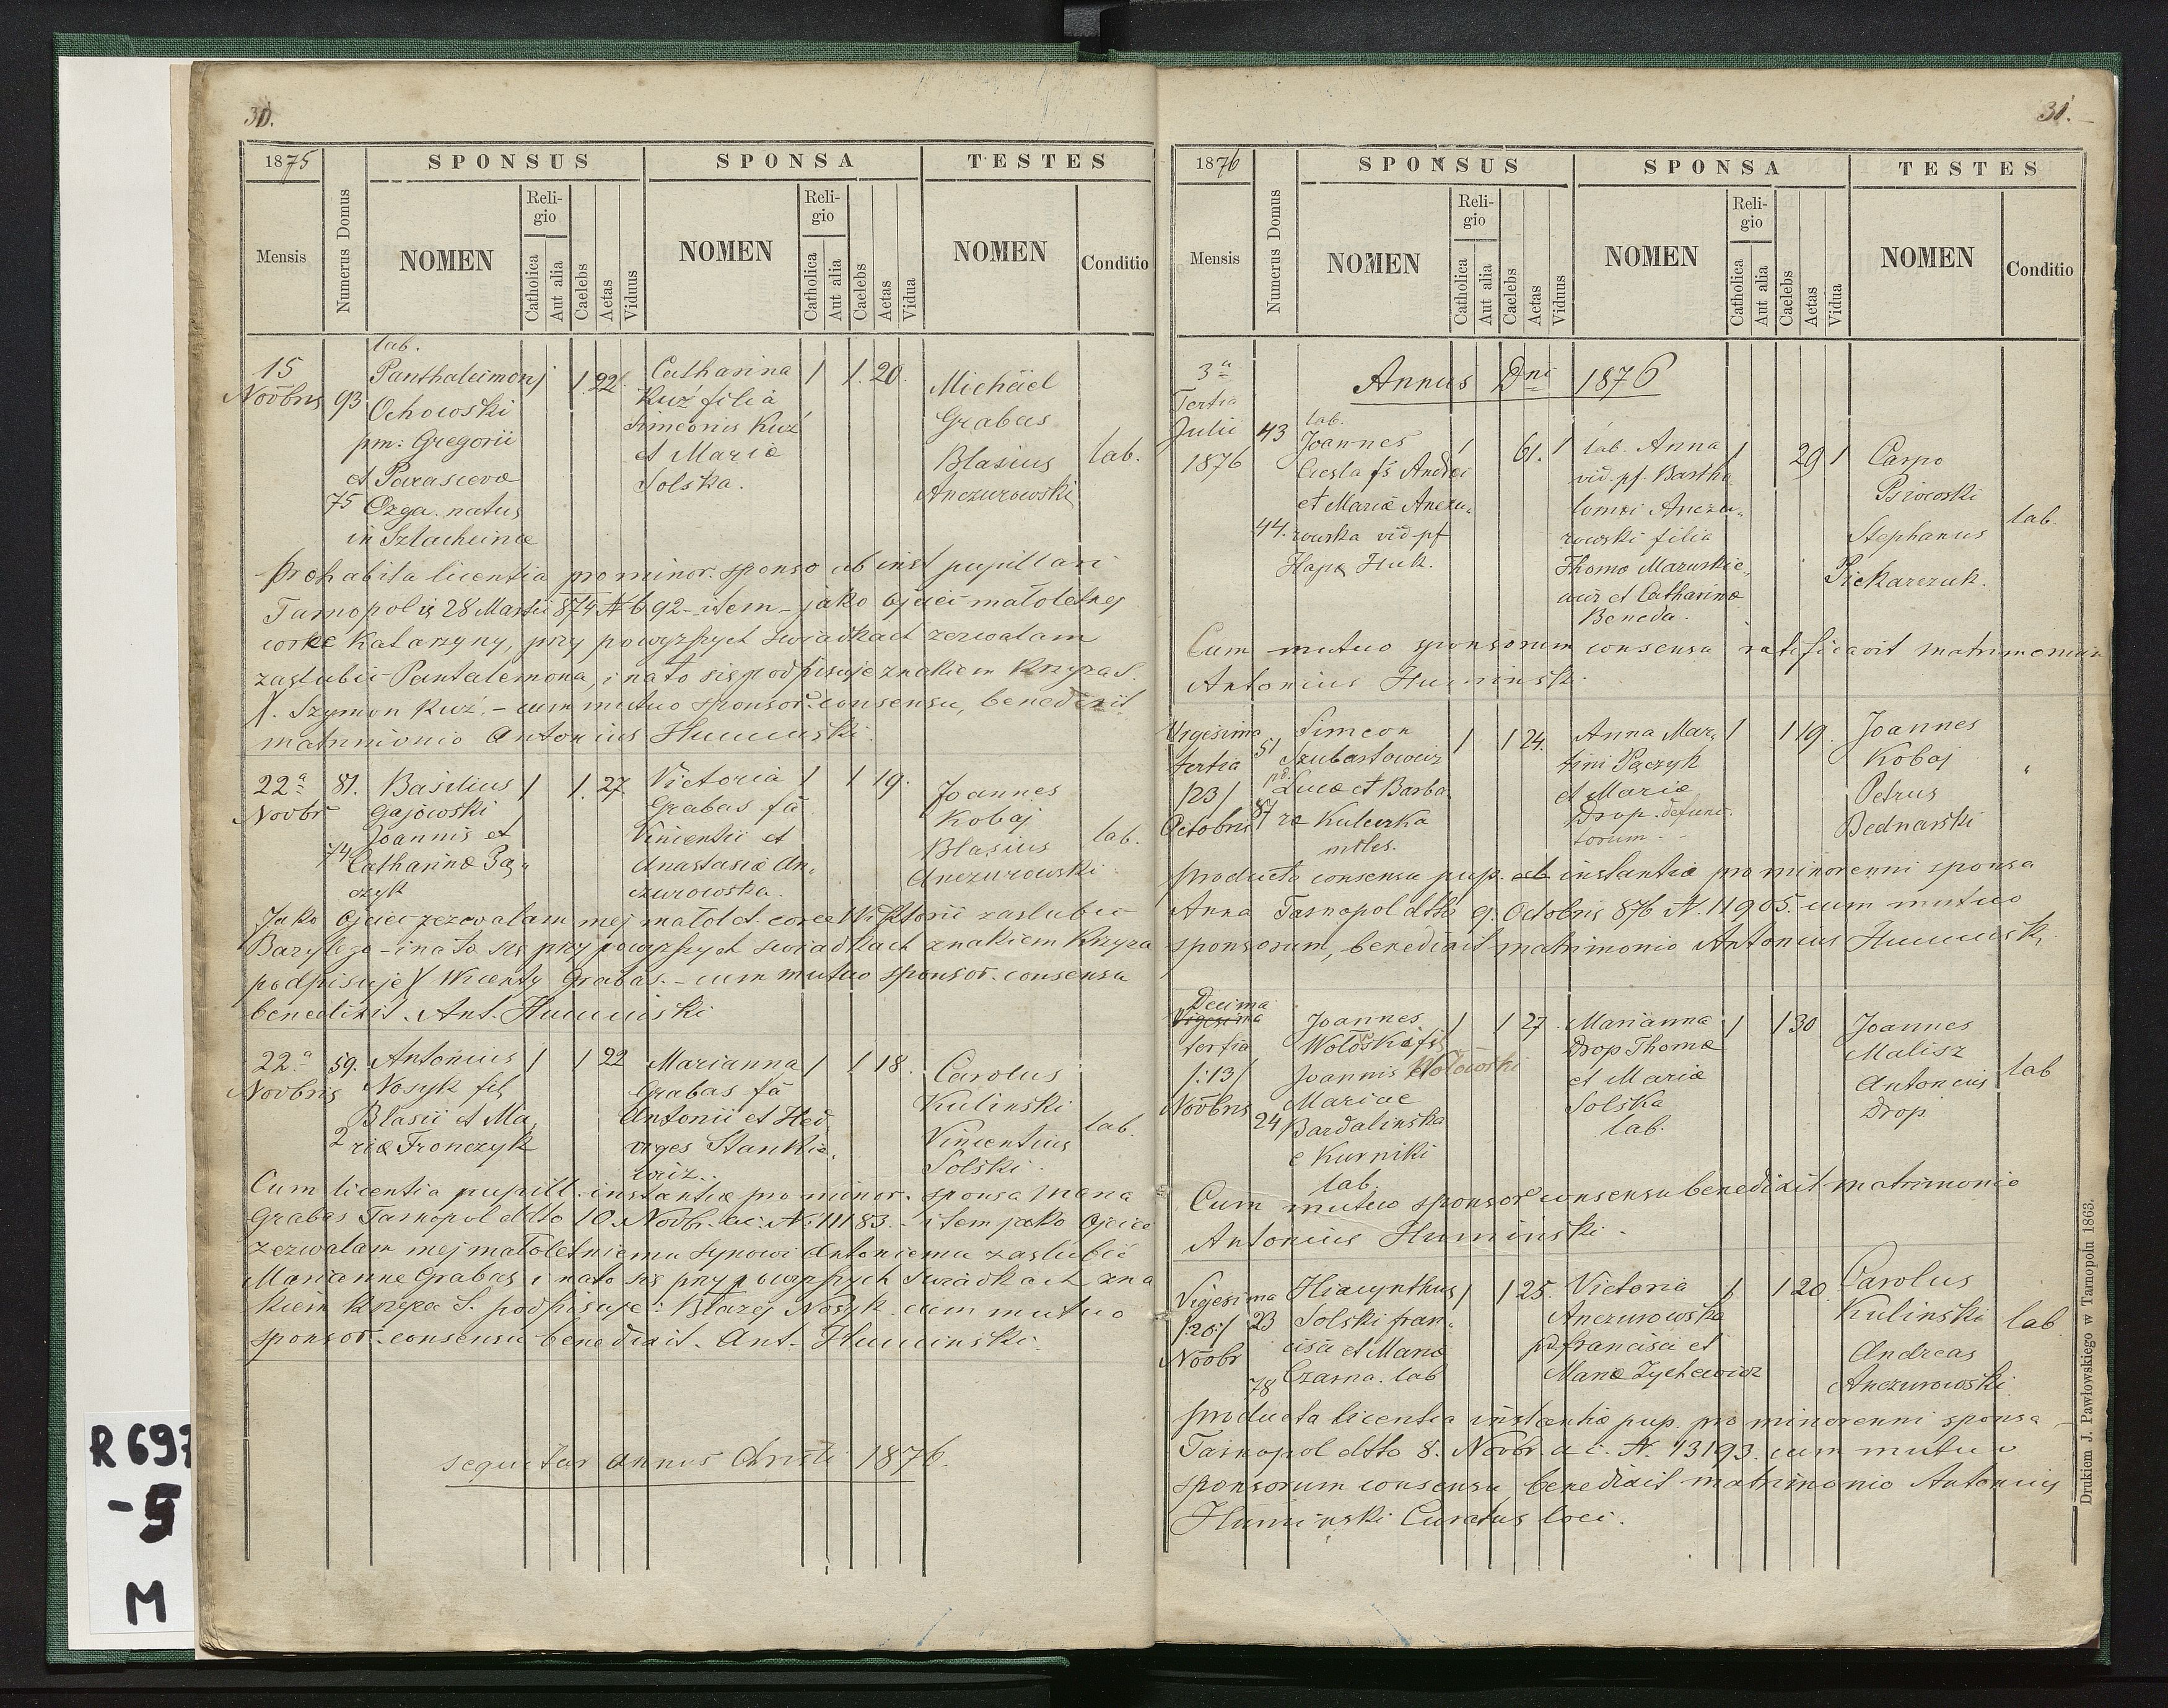 30.
1875
SPONSUS
SPONSA
TESTES
Mensis
Numerus Domus
NOMEN
Religio
Catholica
Aut alia
Caelebs
Aetas
Viduus
NOMEN
Religio
Catholica
Aut alia
Caelebs
Aetas
Vidua
NOMEN
Conditio
15
Novbris
93
lab.
Panthaleimon
Ochowski
pm: Gregorii
et Parasceve
75 Ozga. natus
in Szlachcince
1 1 22
Catharina
Kuź filia
Simeonis Kuź
et Mariæ
Solska.
1 1. 20.
Michäel
Grabas
Blasius
Anczurowski
lab.
prohabita licentia pro minor. sponso ab inst pupillari
Tarnopol is 28 Martii 874 N 692 - item - jako Ojciec małoletnej
corke Katarzyny, przy powyższych swiadkach zezwalam
zaslubic Pantalemona, i na to się podpisuje znakiem Krzyża S.
X. Szymon Kuź. - cum mutuo sponsor. consensu, benedixit
matrimonio Antonius Huminski.
22a
Novbr
81.
Basilius
Gajowski
Joannis et
74 Catharinæ Pą-
czyk
1 1. 27.
Victoria
Grabas fa
Vincentii et
Anastasiæ An-
czurowska.
1 1 19.
Joannes
Kobaj
Blasius
Anczurowski
lab.
Jako Ojciec zezwalam mej małolet. corce Wiktorii zaslubic
Bazylego - i na to się przy powyższych swiadkach znakiem Krzyża
podpisuje X Wicenty Grabas. - cum mutuo sponsor. consensu
benedixit. Ant. Huminski
22a
Novbris
59.
Antonius
Nosyk fil
Blasii et Ma-
2 riæ Fronczyk
1 1 22
Marianna
Grabas fa
Antonii et Hed-
wiges Stankie-
wiz.
1 1 18.
Carolus
Kulinski
Vincentius
Solski.
lab.
Cum licentia pupill. instantiæ pro minor. sponsa Maria
Grabas Tarnopol ddto 10. Novbr. ac. N. 11183. - item jako Ojciec
zezwalam mej małoletniemu synowi Antoniemu zaslubic
Marianne Grabas i na to się przy powyższych swiadkach zna
kiem Krzyża S. podpisuje: Błazej Nosyk. cum mutuo
sponsor. consensu benedixit. Ant. Huminski.
sequitur annus Christi 1876.
31.
1876
SPONSUS
SPONSA
TESTES
Mensis
Numerus Domus
NOMEN
Religio
Catholica
Aut alia
Caelebs
Aetas
Viduus
NOMEN
Religio
Catholica
Aut alia
Caelebs
Aetas
Vidua
NOMEN
Conditio
Annus Dni 1876
3a
Tertia
Julii
1876
43
lab.
Joannes
Ciesla fs Andrei
et Mariæ Anczu-
44. rowska vid pf
Hapæ Huk.
1 61. 1
lab. Anna
vid. pf. Bartho
lomæi Anczu-
rowski filia
Thomæ Mazurkie-
wiz et Catharinæ
Beneda.
1 29 1
Carpo
Psiowski
Stephanus
Piekarczuk.
lab.
Cum mutuo sponsorum consensu ratificavit matrimonium
Antonius Huminski.
Vigesima
tertia
/23/
Octobris
51
87
Simeon
Szubartowicz
pd. Lucæ et Barba
ræ Kulczka
mtles.
1 1 24.
Anna Mar-
tini Pączyk
et Mariæ
Drop. defunc-
torum
1 1 19.
Joannes
Kobaj
Petrus
Bednarski
"
producto consensu pup. ab instantiæ pro minorenni sponsa
Anna Tarnopol dtto 9. Octobris 876 N. 11905. cum mutuo
sponsorum, benedixit matrimonio Antonius Huminski
Decima
Vigesima
tertia
/:13/
Novbris
24
Joannes
Wołoska fs
Joannis Wołowski
Mariae
Bardalinska
e Kurniki
lab.
1 1 27.
Marianna
Drop Thomæ
et Mariæ
Solska
lab.
1 1 30
Joannes
Malisz
Antonius
Drop
lab
Cum mutuo sponsor consensu benedixit matrimonio
Antonius Huminski.
Vigesima
/:20:/
Novbr
23
78
Hiacynthus
Solski fran-
cisci et Mariæ
Czarna. lab
1 1 25.
Victoria
Anczurowska
pd. francisci et
Mariæ Zychowicz
1 1 20.
Carolus
Kulinski
Andreas
Anczurowski
lab
producta licentia instantiæ pup. pro minorenni sponsa
Tarnopol dtto 8. Novbr. a c. N. 13193. cum mutuo
sponsorum consensu benedixit matrimonio Antonius
Huminski Curatus loci.
Drukiem J. Pawłowskiego w Tarnopolu 1863.
R 697
-5
M